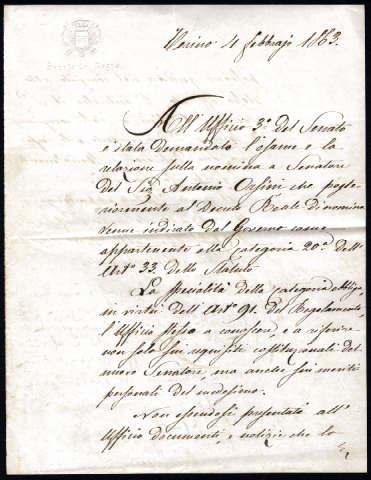 Senato del Regno
Torino 4 febbrajo 1863.
All'Ufficio 3º del Senato
è stata demandato l'esame e la
relazione sulla nomina a Senatore
del Sig. Antonio Orsini che poste-
riormente al Decreto Reale di nomina
venne indicato dal Governo come
appartenente alla categoria 20ª dell'
Artº 33. dello Statuto.
La specialità della categoria obbliga,
in virtù dell'Artº 91. del Regolamento,
l'Ufficio stesso a conoscere, e a riferire
non solo sui requisiti costituzionali del
nuovo Senatore, ma anche sui meriti
personali del medesimo.
Non essendosi presentati all'
Ufficio documenti, e notizie che lo